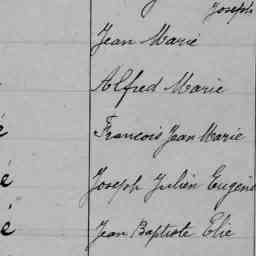 Joseph
Jean Marie
Alfred Marie
é François Jean Marie
é Joseph Julien Eugène
é Jean Baptiste Elie